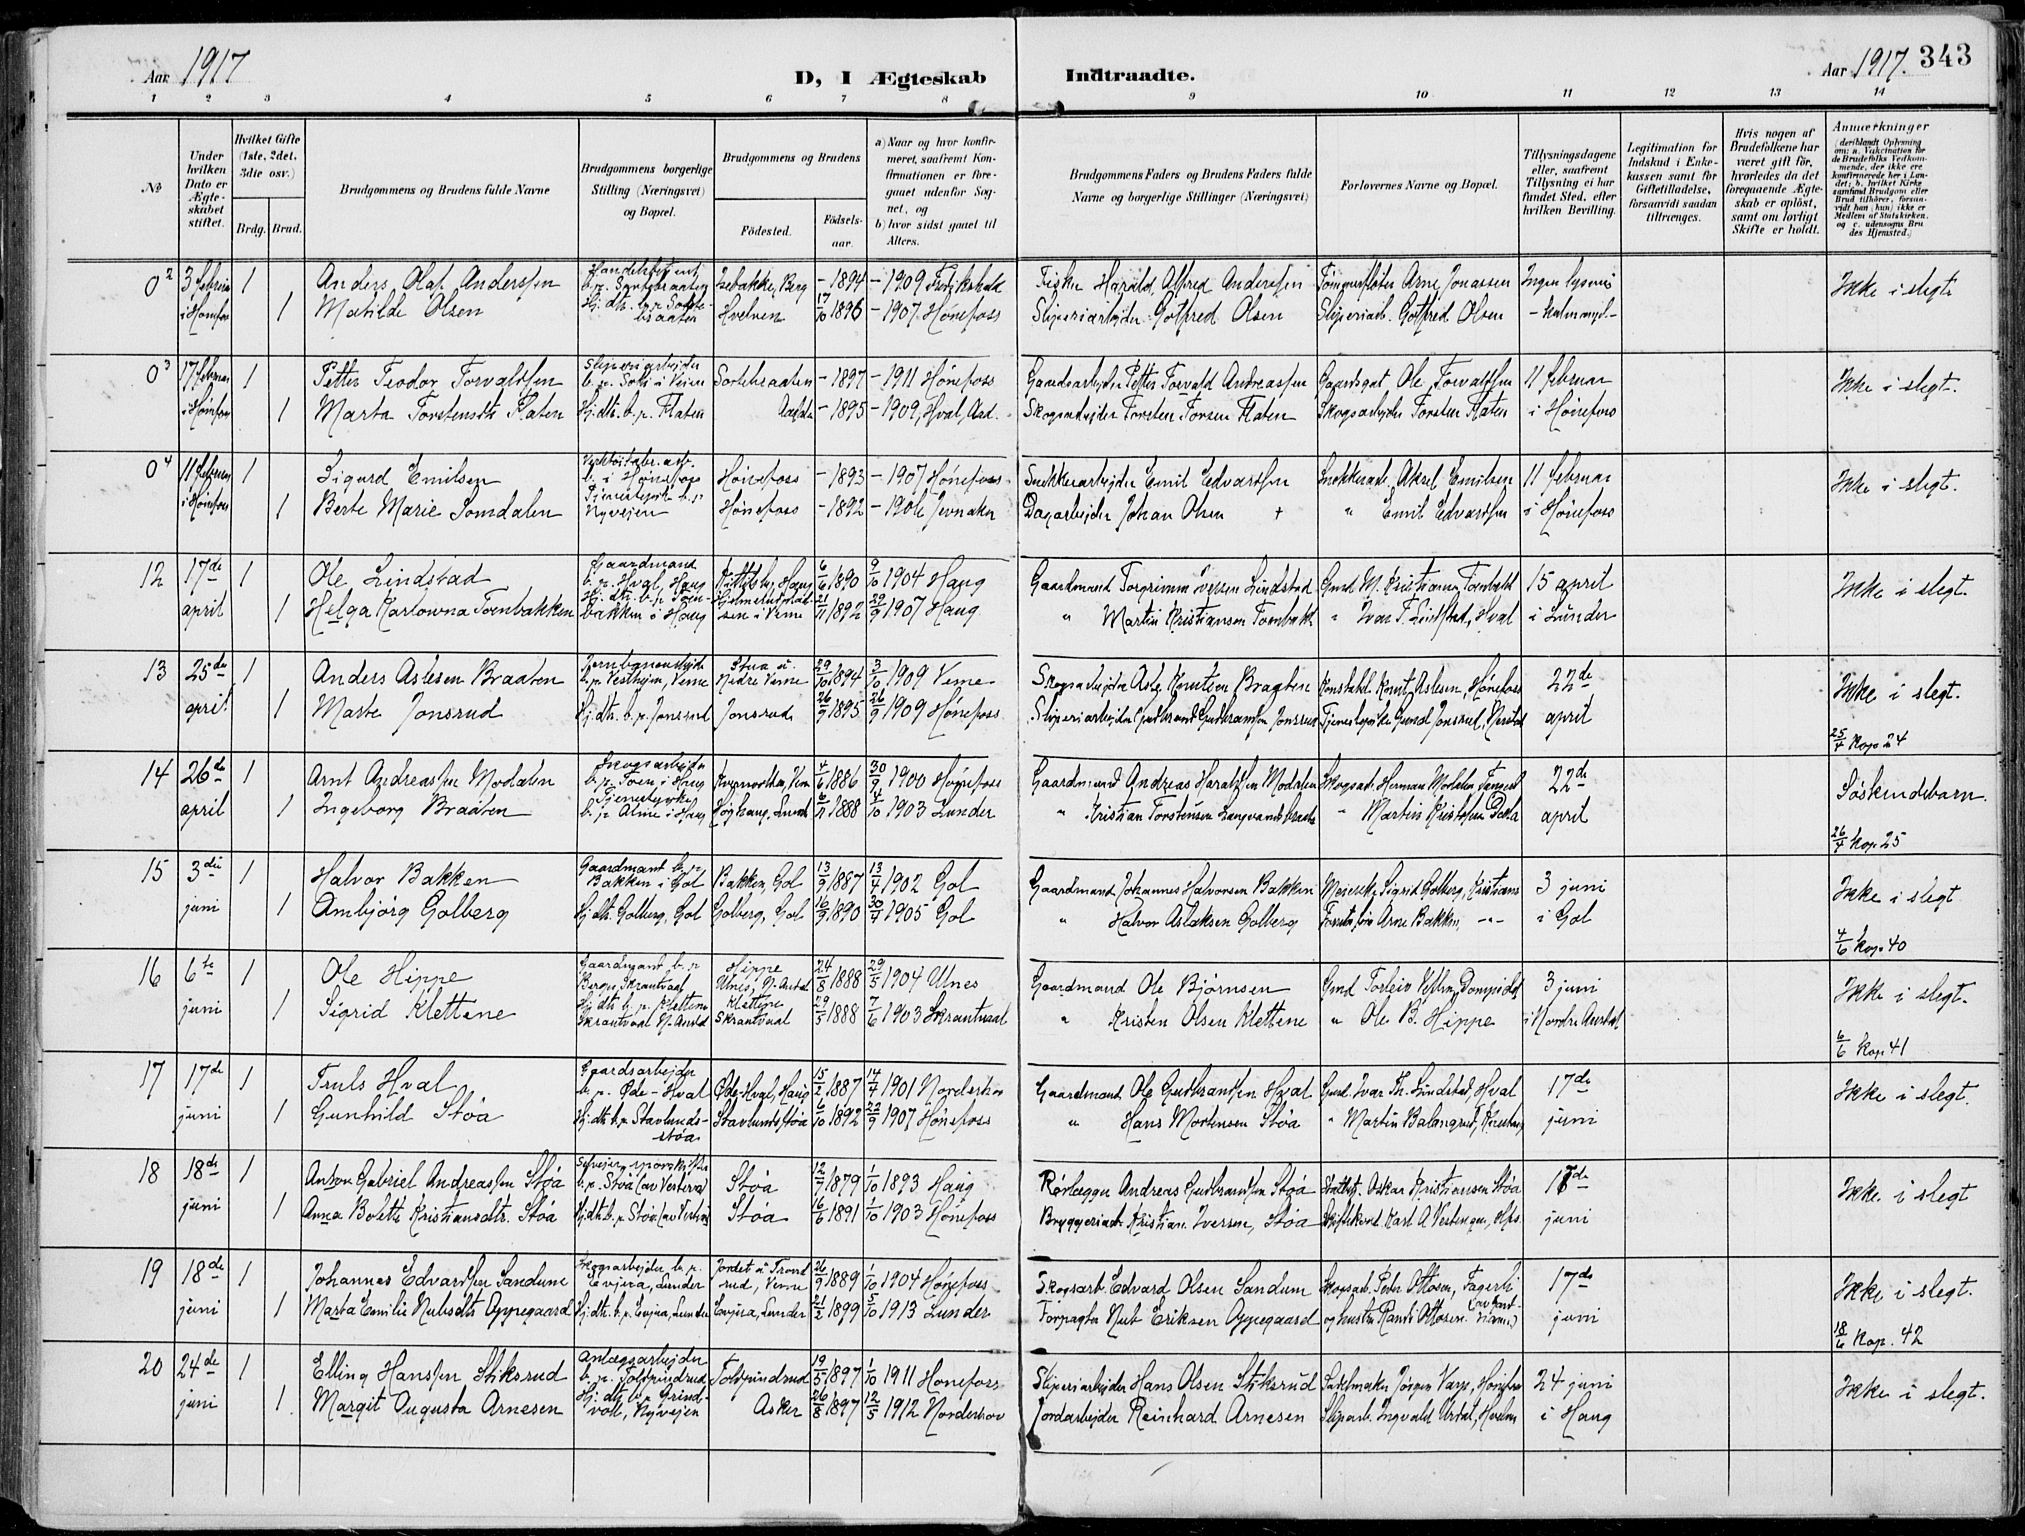 Aar 1917
D, I Ægteskab
Indtraadte.
Aar 1917. 343
1 2 3 4 5 6 7 8 9 10 11 12 13 14
№
Under hvilken Dato er Ægteskabet stiftet.
Hvilket Gifte (1ste, 2det, 3die osv.)
Brdg. Brud.
Brudgommens og Brudens fulde Navne
Brudgommens borgerlige Stilling (Næringsvei) og Bopæl.
Brudgommens og Brudens
Födested.
Födselsaar.
a) Naar og hvor konfirmeret, saafremt Konfirmationen er foregaaet udenfor Sognet, og
b) hvor sidst gaaet til Alters.
Brudgommens Faders og Brudens Faders fulde Navne og borgerlige Stillinger (Næringsvei)
Forlovernes Navne og Bopæl.
Tillysningsdagene eller, saafremt Tillysning ei har fundet Sted, efter hvilken Bevilling.
Legitimation for Indskud i Enkekassen samt for Giftetilladelse, forsaavidt saadan tiltrænges.
Hvis nogen af Brudefolkene har været gift før, hvorledes da det foregaaende Ægteskab er oplöst, samt om lovligt Skifte er holdt.
Anmerkninger
(deriblandt Oplysning om: a. Vakcination for de Brudefolks Vedkommende, der ikke ere konfirmerede her i Landet; b. hvilket Kirkesamfund Brudgom eller Brud tilhörer, forsaavidt han (hun) ikke er Medlem af Statskirken, og c. udensogns Brudes Hjemsted.)
02 3 februar 1 Anders Olaf Anderssen Isebakke, Berg - 1894 - 1909 Fredrikshald Fisker Harald Alfred Anderssen Tømmerfløter Arne Jonassen Ingen lysning Ikke i slegt
i Hønefos 1 Matilde Olsen Hvelven 17/10 1896 - 1907 Hønefoss Sliperiarbejder Gotfred Olsen Sliperiarb. Gotfred Olsen
03 17 februar 1 Petter Teodor Torvaldsen Sliperiarbejder Sortebraaten - 1897 - 1911 Hønefoss Gaardsarbejder Petter Torvald Andreassen Gaardsgut Ole Torvaldsen 11 februar Ikke i slegt.
i Hønefos 1 Marta Torstensdtr Flaten Hj.dtr. b. p. Flaten - 1895 - 1909, Hval, Aad. Skogsarbejder Torsten Torsen Flaten Skogsarbejder Torsten Flaten i Hønefoss
04 11 februar 1 Sigurd Emilsen b. i Hønefoss Hønefoss - 1893 - 1907 Hønefoss Snekkerarbejder Emil Edvardsen Snekkerarb. Aksel Emilsen 11 februar Ikke i slegt.
i Hønefoss 1 Berte Marie Somdalen Tjenestepike b. p. Nyvejen Hønefoss - 1892 - 1906 Jevnaker Dagarbejder Johan Olsen + " Emil Edvardsen i Hønefoss
12 17de 1 Ole Lindstad Gaardmand b. p. Hval, Haug 6/6 1890 9/10 1904 Haug Gaardmand Torgrimm Iversen Lindstad Gmd M. Kristiansen Toenbakk 15 april Ikke i slegt.
april 1 Helga Karlowna Toenbakken Hj. dtr. b. p. Toenbakken i Haug 21/11 1892 29/9 1907 Haug " Martin Kristiansen Toenbakk " Ivar T. Lindstad, Hval i Lunder
13 25de 1 Anders Aslesen Braaten Jernbanearbejder b. p. Vestheim, Veme Stua u. Nedre Veme 29/10 1894 3/10 1909 Veme Skogsarbejder Asle Knutsen Braaten Konstabel Knut Aslesen, Hønefoss 22de Ikke i slegt.
april 1 Marte Jonsrud Hj. dtr. b. p. Jonsrud Jonsrud 26/9 1895 26/9 1909 Hønefoss Sliperiarbejder Gudbrand Gudbrandsen Jonsrud april
25/4 kop. 24
14 26de 1 Arnt Andreassen Modalen Skogsarbejder b. p. Toen i Haug 4/6 1886 30/9 1900 Hønefoss Gaardmand Andreas Haraldsen Modalen Skogsarb. Herman Modalen 22de Søskendebarn.
april 1 Ingeborg Braaten Tjenestepike b. p. Alme i Haug Høghaug, Lunder 6/11 1888 1903 Lunder " Kristian Torstensen Langvandsbraaten " Martin Kristofsen Dæla april
26/4 kop. 25
15 3die 1 Halvor Bakken Gaardmand b. p. Bakken i Gol Bakken, Gol 13/9 1887 13/4 1902 Gol Gaardmand Johannes Halvorsen Bakken Meierske Sigrid Golberg, Kristians 3 juni Ikke i slegt
juni 1 Ambjörg Golberg Hj. dtr. Golberg, Gol Golberg, Gol 16/9 1890 30/4 1905 Gol " Halvor Aslaksen Golberg Arne Bakken, -"- i Gol
4/6 kop. 40
16 6te 1 Ole Hippe Gaardmand b. p. Berge, Skrautvaal Hippe Ulnes, N. Aurdal 24/8 1888 29/5 1904 Ulnes Gaardmand Ole Bjørnsen Gmd Torleiv 3 juni Ikke i slegt.
juni 1 Sigrid Klettene Hj. dtr. b. p. Klettene Skrautvaal N. Aurdal Klettene Skrautvaal 29/5 1888 7/6 1903 Skrautvaal " Kristen Olsen Klettene " Ole B. Hippe i Nordre Aurdal
6/6 kop. 41
17 17de 1 Truls Hval Gaardsarbejder b. p. Øde-Hval Øde-Hval, Haug 15/2 1887 14/7 1901 Norderhov Gaardmand Ole Gudbrandsen Hval Gmd. Ivar Th. Lindstad, Hval 17de Ikke i slegt.
juni 1 Gunhild Støa Hj. dtr. b. p. Stavlundsstøa Stavlundsstøa 6/10 1892 22/9 1907 Hønefoss " Hans Mortensen Støa " Martin juni
18 18de 1 Anton Gabriel Andreassen Støa b. p. Støa (av Vestern) Støa 12/7 1879 1/10 1893 Haug Rørlægger Andreas Gudbrandsen Støa Oskar Kristiansen Støa 17de Ikke i slegt
juni 1 Anna Bolette Kristiansdtr. Støa Hj. dtr. b. p. Støa (av Vestern) Støa 16/6 1891 1/10 1903 Hønefoss Bryggeriarb. Kristian Iversen, Støa juni
19 18de 1 Johannes Edvardsen Sandum Skogsarbejder b. p. Evjua, Lunder Jordet u. Trondrud, Veme 26/9 1889 1/10 1904 Hønefoss Skogsarb. Edvard Olsen Sandum Skogsarb. Peder Ottosen, Fagerli 17de Ikke i slegt.
juni 1 Marta Emilie Nubsdtr Oppegaard Hj. dtr. b. p. Evjua, Lunder Evjua, Lunder 21/2 1899 5/10 1913 Lunder Forpagter Nub Eriksen Oppegaard og hustru Randi Ottosen juni
18/6 kop. 42
20 24de 1 Elling Hanssen Stiksrud Anlægsarbejder b. p. Tolpinrud Tolpinrud 19/5 1897 1/10 1911 Hønefoss Sliperiarbejder Hans Olsen Stiksrud Sadelmaker Jørgen 24 juni Ikke i slegt.
juni 1 Margit Augusta Arnesen Hj. dtr. b. p. Grindvoll, Nyvejen Asker 26/8 1897 12/5 1912 Norderhov Jordarbejder Reinhard Arnesen Sliparb. Ingvald i Haug